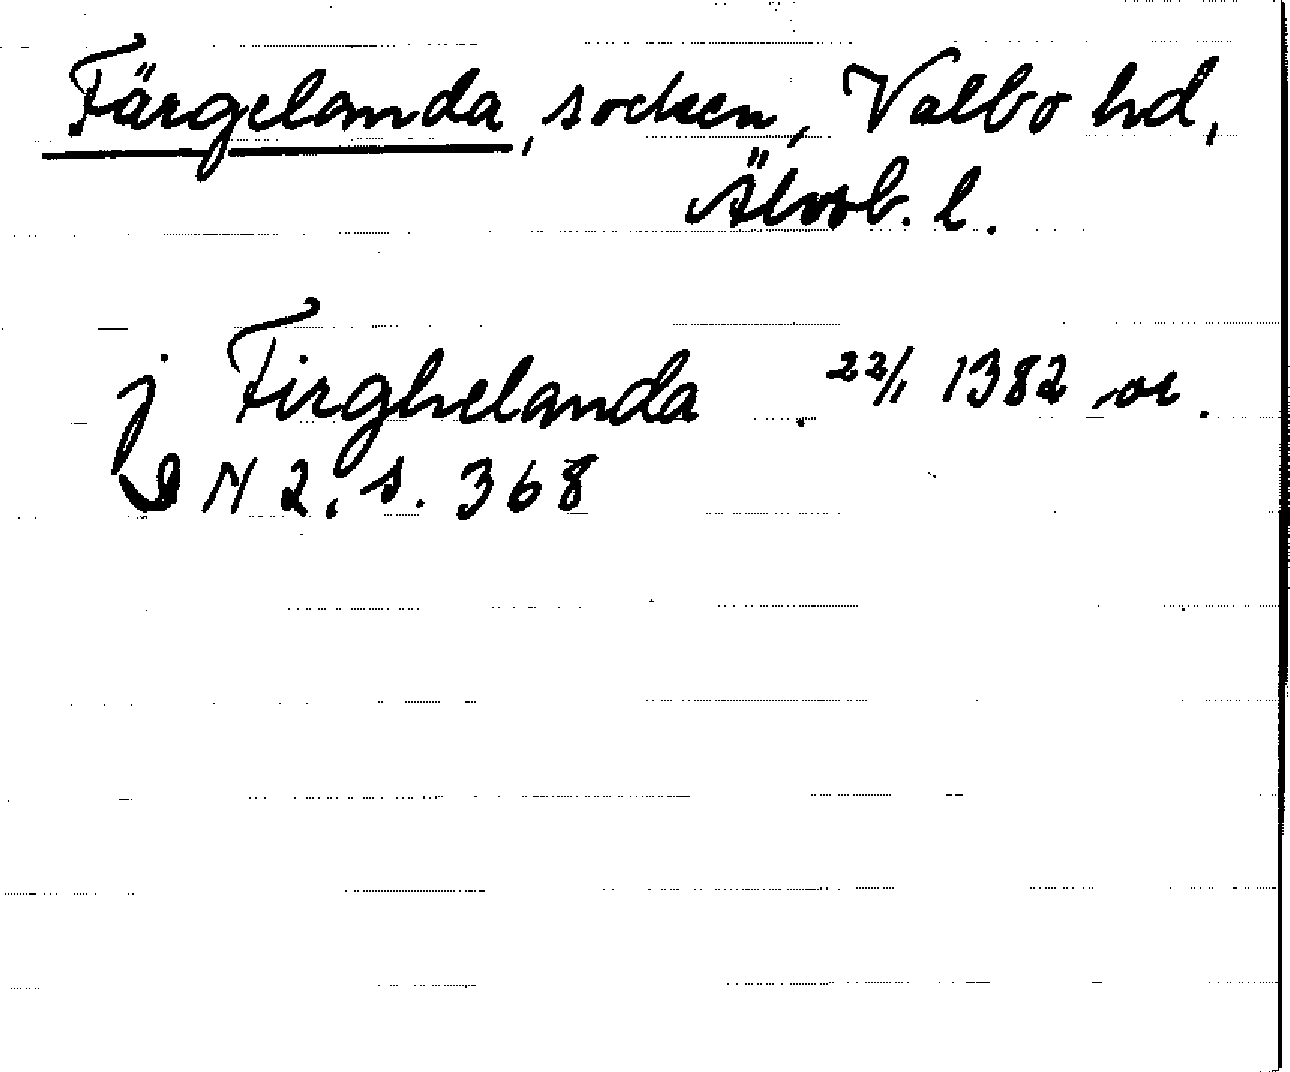 Färgelanda, socken, Valbo hd,
Älvsb. l.
j Firghelanda 22/1 1382 or.
N 2. s. 368